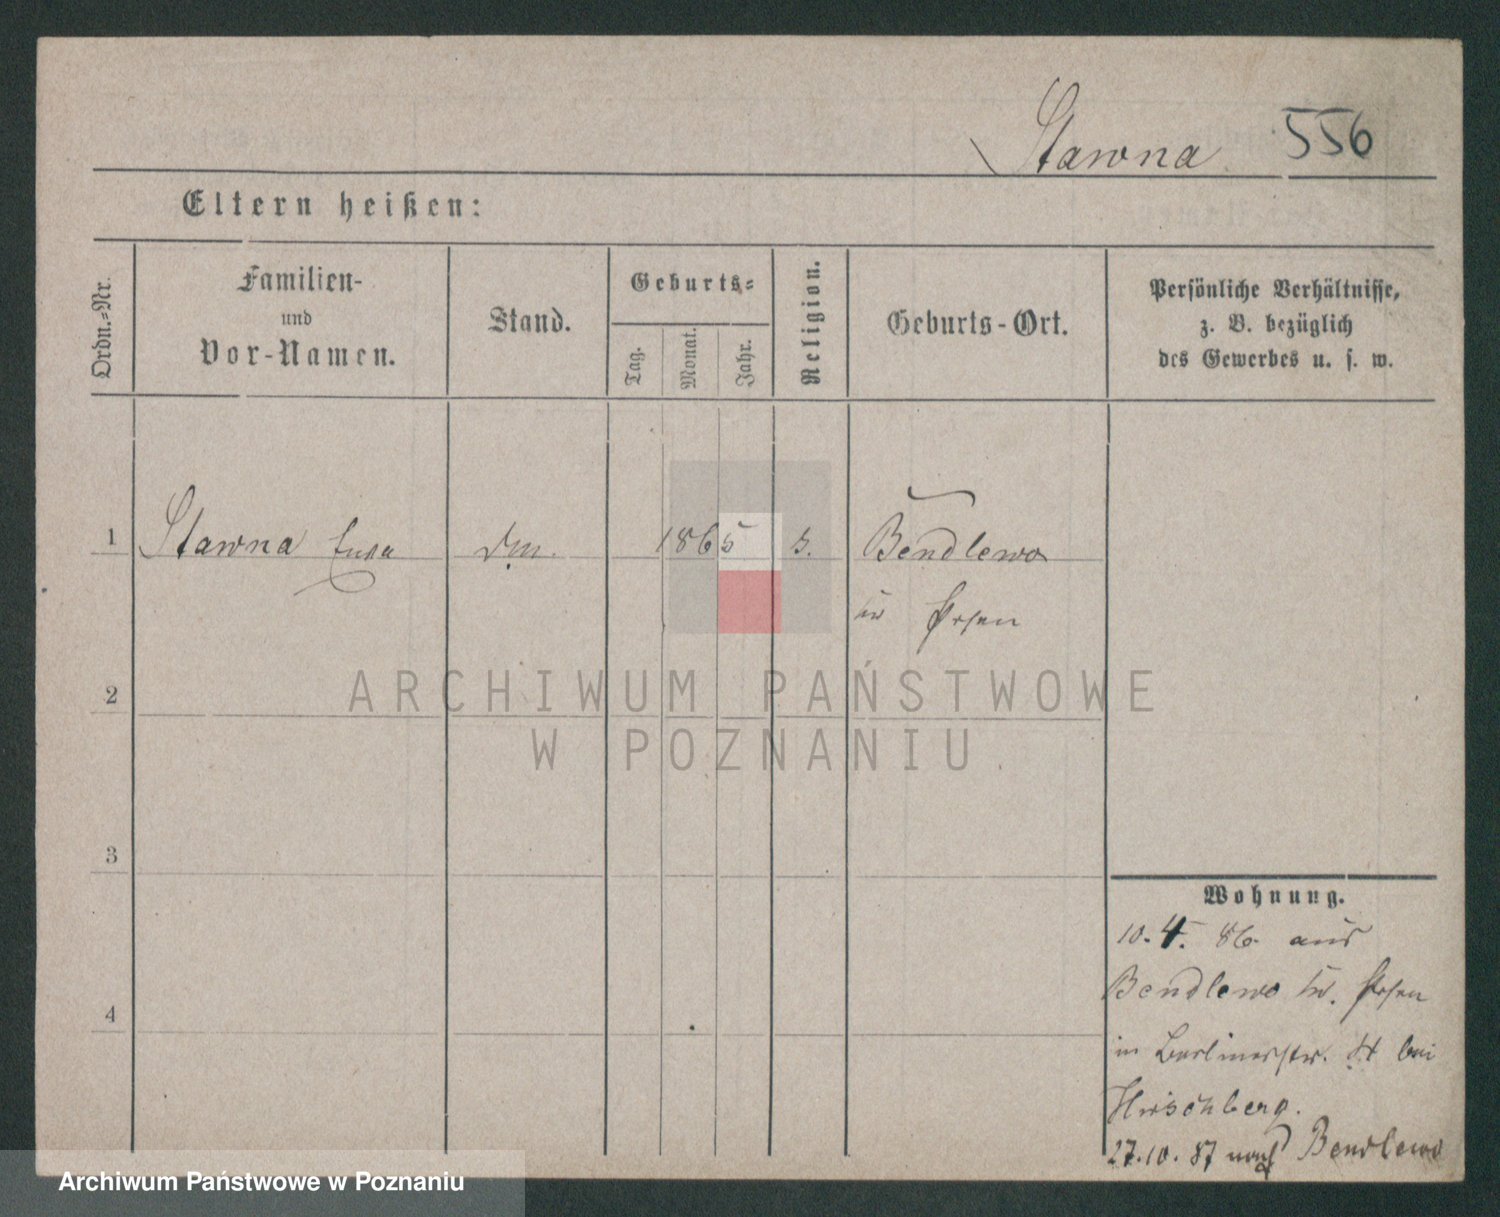 Stawna 556
Eltern heißen:
Ordn.-Nr.
Familien-
und
Vor-Namen.
Stand.
Geburts-
Tag.
Monat.
Jahr.
Religion.
Geburts-Ort.
Persönliche Verhältnisse,
z. B. bezüglich
des Gewerbes u. s. w.
1 Stawna 1865 Bendlewo
Kr Posen
2
ARCHIWUM PAŃSTWOWE
W POZNANIU
3
4
Wohnung.
10. 4. 86 aus
Bendlewo Kr. Posen
in Berlinerstr. bei
Hirschberg.
27.10.87 nach Bendlewo
Archiwum Państwowe w Poznaniu